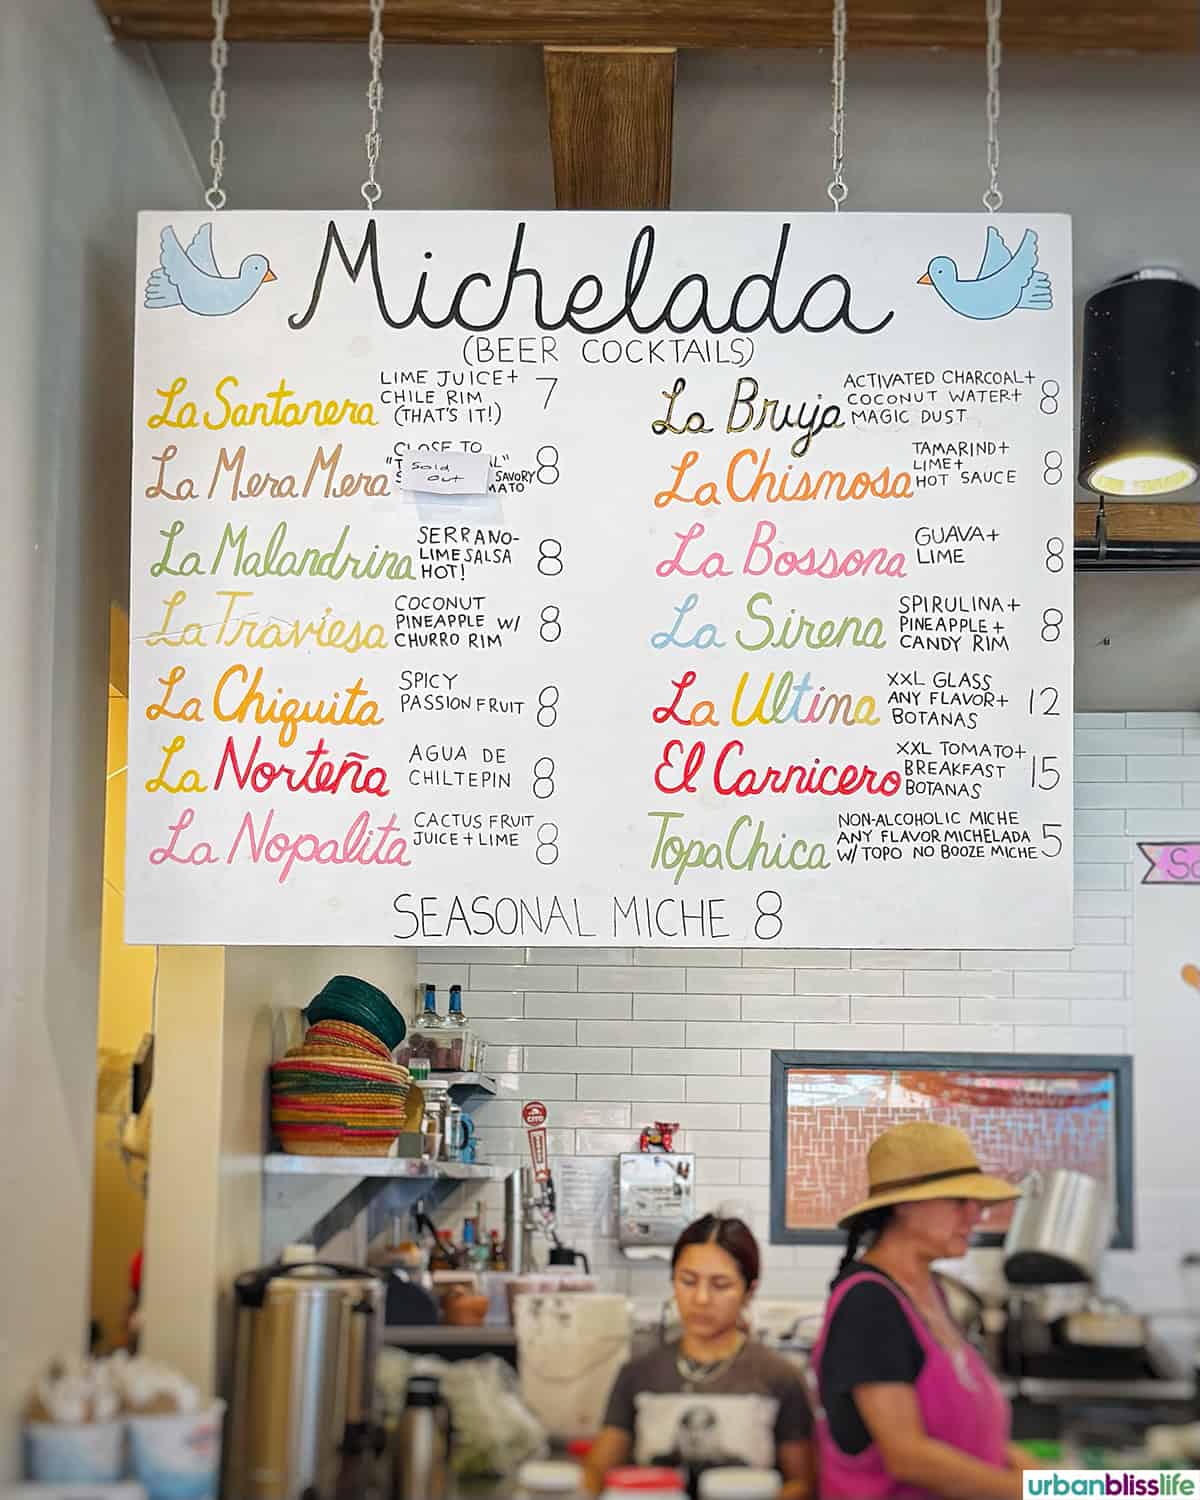 Michelada
(BEER COCKTAILS)
La Santanera
LIME JUICE+
CHILE RIM
(THAT'S IT!)
7
La Mera Mera
CLOSE TO
Sold
out
SAVORY
8
La Malandrina
SERRANO-
LIME SALSA
HOT!
8
La Traviesa
COCONUT
PINEAPPLE W/
CHURRO RIM
8
La Chiquita
SPICY
PASSION FRUIT
8
La Norteña
AGUA DE
CHILTEPIN
8
La Nopalita
CACTUS FRUIT
JUICE+LIME
8
La Bruja
ACTIVATED CHARCOAL+
COCONUT WATER+
MAGIC DUST
8
La Chismosa
TAMARIND+
LIME+
HOT SAUCE
8
La Bossona
GUAVA+
LIME
8
La Sirena
SPIRULINA+
PINEAPPLE+
CANDY RIM
8
La Ultina
XXL GLASS
ANY FLAVOR+
BOTANAS
12
El Carnicero
XXL TOMATO+
BREAKFAST
BOTANAS
15
Topa Chica
NON-ALCOHOLIC MICHE
ANY FLAVOR MICHELADA
W/ TOPO NO BOOZE MICHE
5
SEASONAL MICHE 8
urbanblisslife